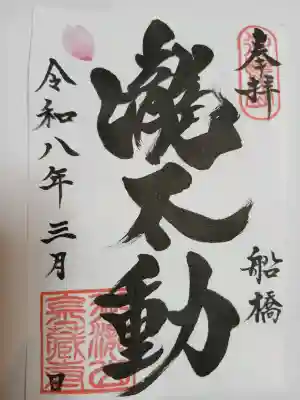 奉拝
船橋
瀧不動
令和八年三月 日